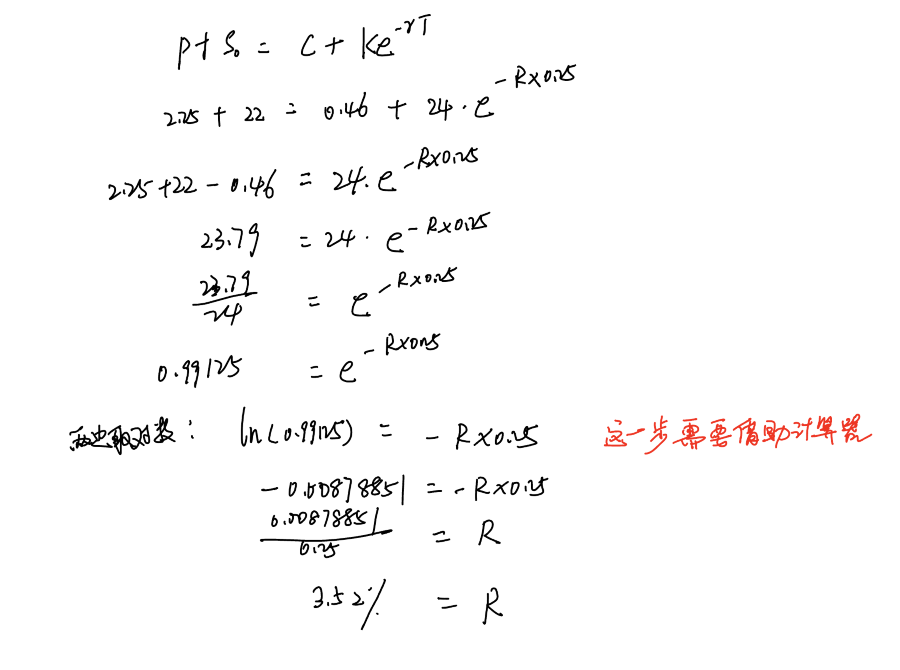 P + S₀ = C + Ke^{-rT}
2.25 + 22 = 0.46 + 24 · e^{-R×0.25}
2.25+22 - 0.46 = 24 · e^{-R×0.25}
23.79 = 24 · e^{-R×0.25}
23.79/24 = e^{-R×0.25}
0.99125 = e^{-R×0.25}
两边取对数： ln(0.99125) = -R×0.25 这一步需要借助计算器
-0.00878851 = -R×0.25
0.00878851/0.25 = R
3.52% = R